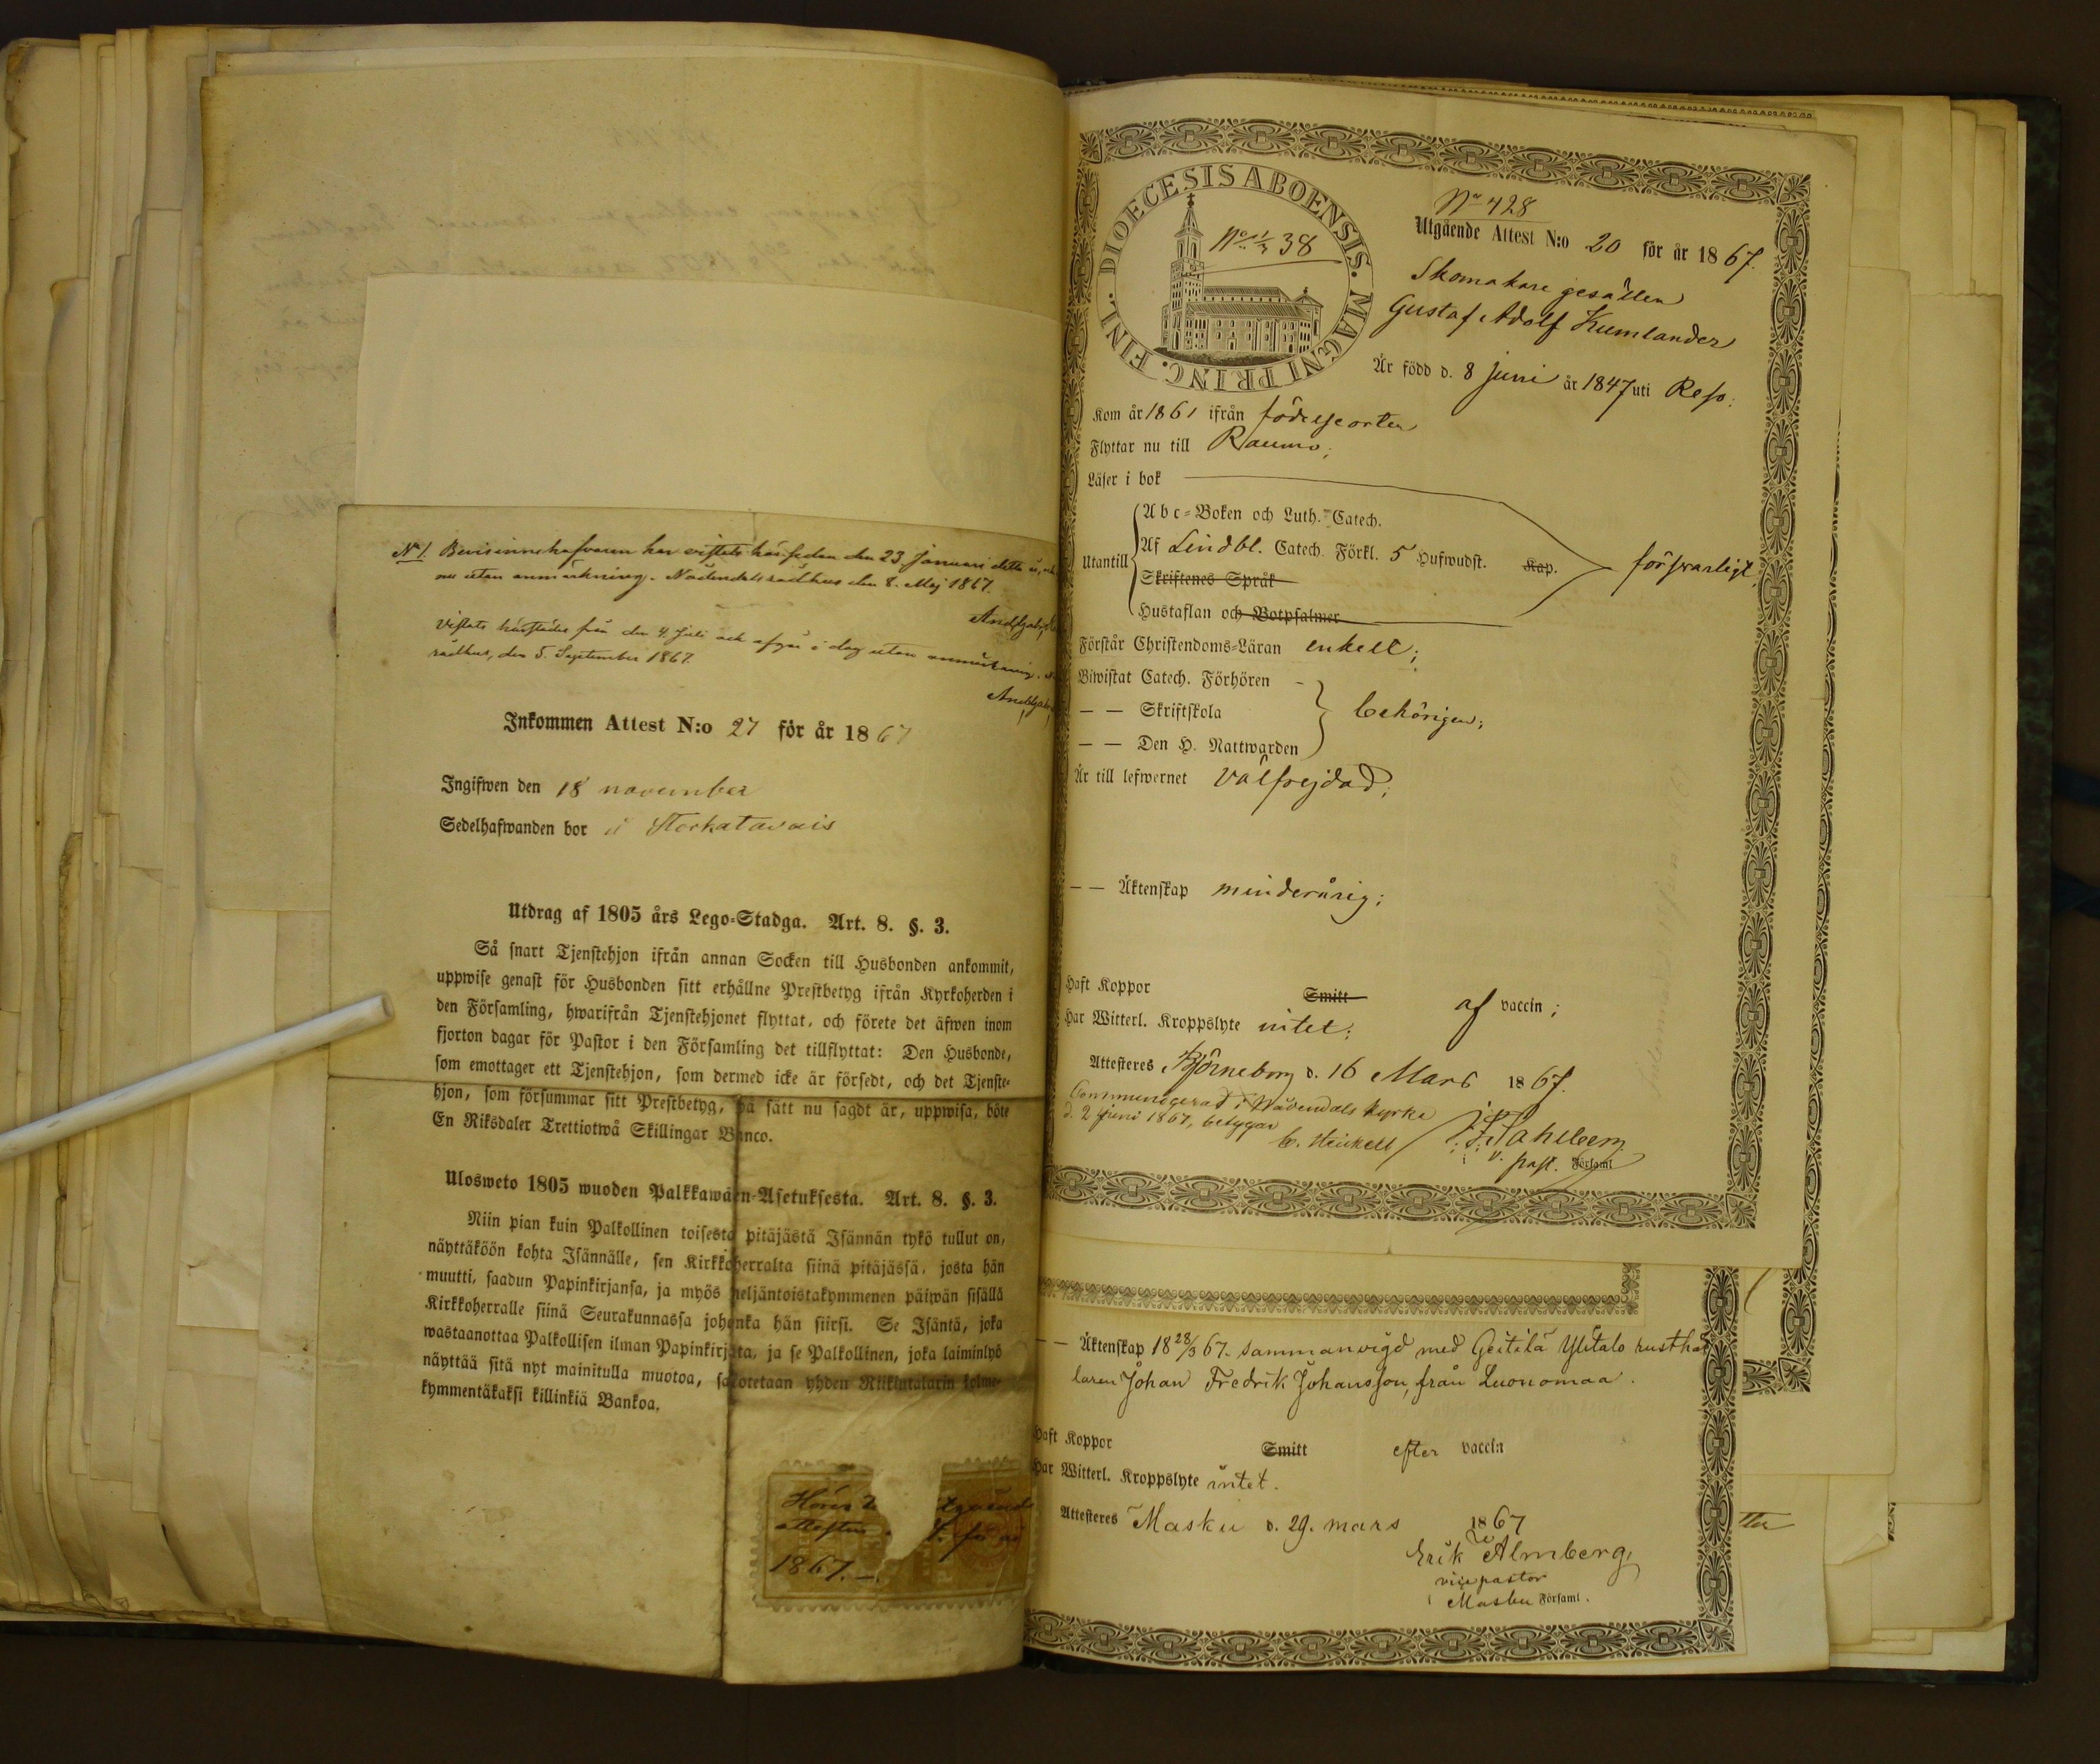 No 1. Bevisinnehafvaren har vistats här sedan den 23 Januari detta år, och
nu utan anmärkning. Nådendals rådhus den 8. Maj 1867.
Vistats härstädes från den 4. Juli och afgår i dag utan anmärkning.
rådhus, den 5. September 1867.
Inkommen Attest N:o 27 för år 1867
Ingifwen den 18 november
Sedelhafwanden bor i Storkatavais
Utdrag af 1805 års Lego-Stadga. Art. 8. §. 3.
Så snart Tjenstehjon ifrån annan Socken till Husbonden ankommit,
uppwise genast för Husbonden sitt erhållne Prestbetyg ifrån Kyrkoherden i
den Församling, hwarifrån Tjenstehjonet flyttat, och förete det äfwen inom
fjorton dagar för Pastor i den Församling det tillflyttat: Den Husbonde,
som emottager ett Tjenstehjon, som dermed icke är försedt, och det Tjenste-
hjon, som försummar sitt Prestbetyg, på sätt nu sagdt är, uppwisa, böte
En Riksdaler Trettiotwå Skillingar Banco.
Ulosweto 1805 wuoden Palkkawäen-Asetuksesta. Art. 8. §. 3.
Niin pian kuin Palkollinen toisesta pitäjästä Isännän tykö tullut on,
näyttäköön kohta Isännälle, sen Kirkkoherralta siinä pitäjässä, josta hän
muutti, saadun Papinkirjansa, ja myös neljäntoistakymmenen päiwän sisällä
Kirkkoherralle siinä Seurakunnassa johonka hän siirsi. Se Isäntä, joka
wastaanottaa Palkollisen ilman Papinkirjata, ja se Palkollinen, joka laiminlyö
näyttää sitä nyt mainitulla muotoa, sakotetaan yhden Riikintalarin kolme-
kymmentäkaksi killinkiä Bankoa.
1867.
DIOECESIS ABOENSIS. MAGNI PRINC. FINL.
No 38
No 428
Utgående Attest N:o 20 för år 1867.
Skomakare gesällen
Gustaf Adolf Kumlander
Är född d. 8 juni år 1847 uti Reso.
Kom år 1861 ifrån födelseorten
Flyttar nu till Raumo;
Läser i bok
Utantill
Abc-Boken och Luth. Catech.
Af Lindbl. Catech. Förkl. 5 Hufwudst. Kap.
Skriftenes Språk
Hustaflan och Botpsalmer
försvarligt
Förstår Christendoms-Läran enkelt;
Biwistat Catech. Förhören
— — Skriftskola
— — Den H. Nattwarden
behörigen;
Är till lefwernet välfrejdad;
— — Äktenskap minderårig;
Haft Koppor Smitt af vaccin;
Har Witterl. Kroppslyte intet;
Attesteres Björneborg d. 16 Mars 1867.
Communicerad i Nådendals kyrka
d. 2 Juni 1867, betygar
C. Heickell
v. past. Församl
— Äktenskap 18 28/3 67. sammanvigd med Geitilä Ylitalo rusthål
laren Johan Fredrik Johansson, från Luonomaa.
Haft Koppor Smitt efter vaccin
Har Witterl. Kroppslyte intet.
Attesteres Masku d. 29. mars 1867
Erik Almberg
vice pastor
Masku Församl.